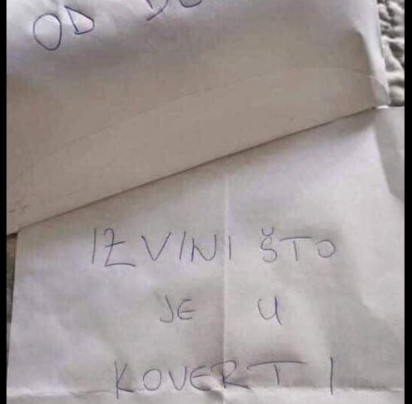 OD
IZVINI ŠTO
JE U
KOVERTI